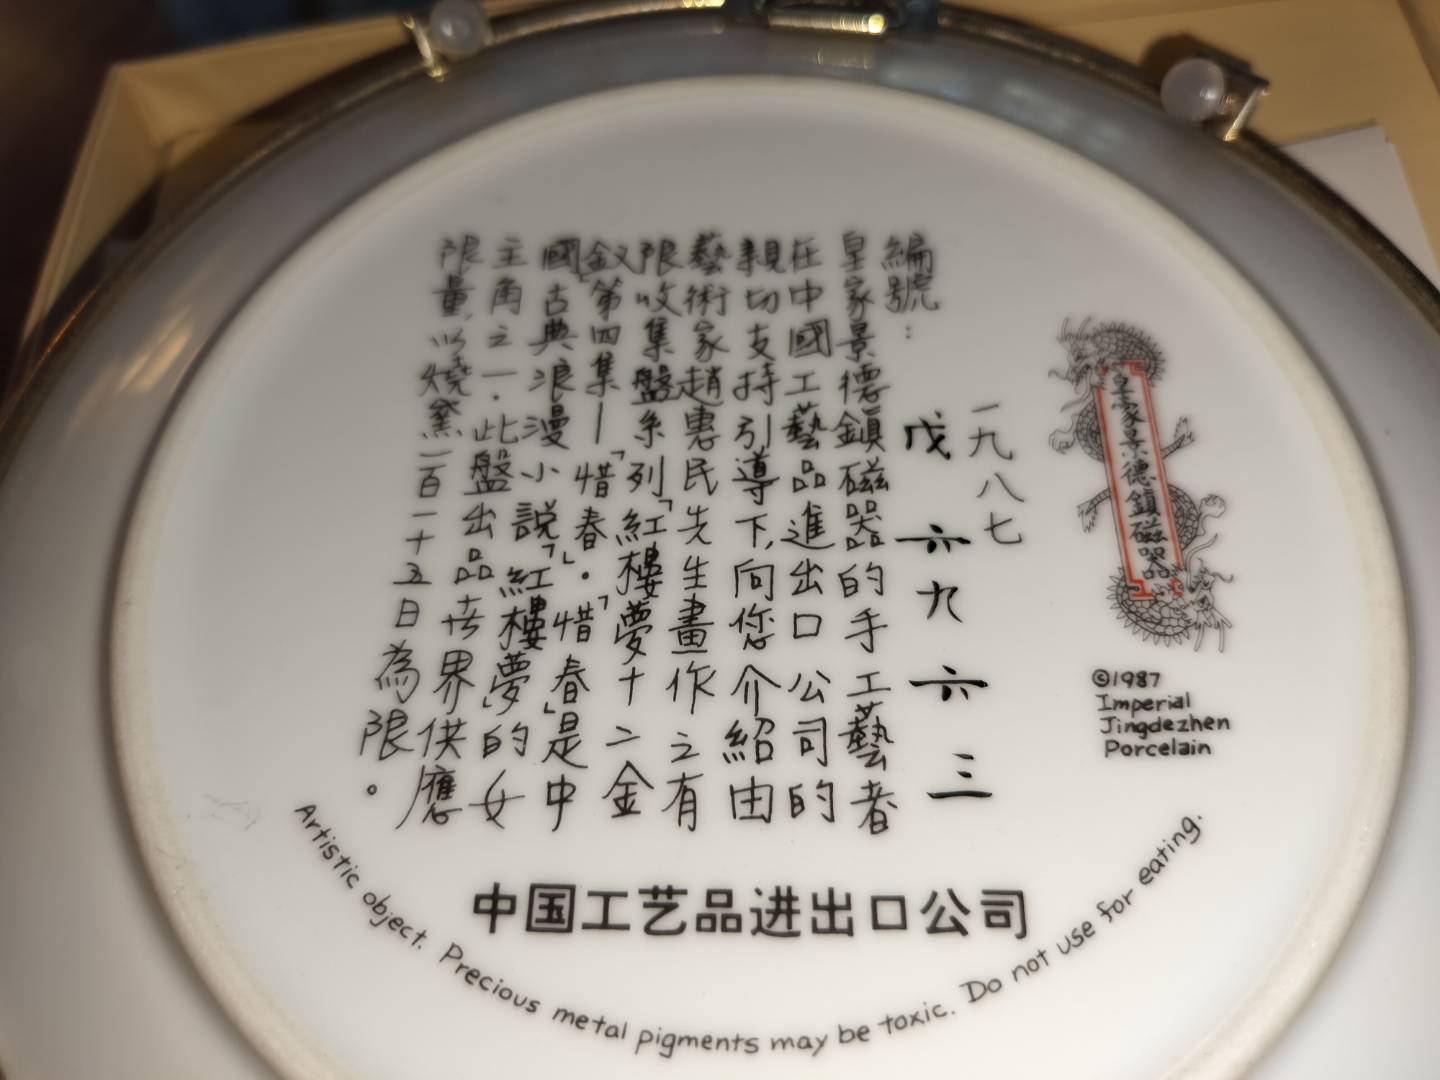 皇家景德鎮磁器
©1987
Imperial
Jingdezhen
Porcelain
一九八七
編號：
戊六九六三
皇家景德鎮磁器的手工藝者
在中國工藝品進出口公司的
親切支持引導下，向您介紹由
藝術家趙惠民先生畫作之有
限收集盤系列「紅樓夢十二金
釵」第四集—「惜春」。「惜春」是中
國古典浪漫小說「紅樓夢」的女
主角之一．此盤出品世界供應
限量，以燒窯一百一十五日為限。
中国工艺品进出口公司
Artistic object. Precious metal pigments may be toxic. Do not use for eating.